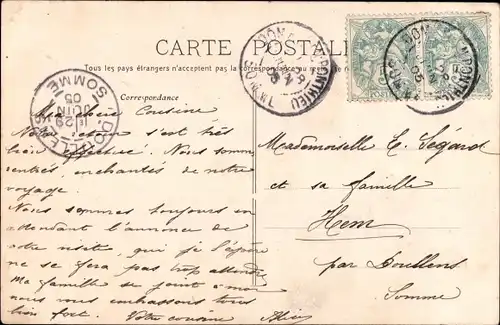 CARTE POSTALE
Tous les pays étrangers n'acceptent pas la correspondance au recto
Correspondance
Ma chère Cousine
Notre retour s'est très
bien effectué. Nous sommes
rentrés enchantés de notre
voyage.
Nous sommes toujours en
attendant l'annonce de
votre visite, qui je l'espère
ne se fera pas trop attendre
Ma famille se joint à moi
nous vous embrassons tous
bien fort. Votre cousine Alice
Mademoiselle E. Ségard
et sa famille
Hem
par Doullens
Somme
DOMART-EN-PONTHIEU
SOMME
DOULLENS
SOMME
1E 29
JUIN
05